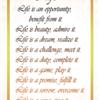 Life is an opportunity,
benefit from it.
Life is beauty, admire it.
Life is a dream, realize it.
Life is a challenge, meet it.
Life is a duty, complete it.
Life is a game, play it.
Life is a promise, fulfill it.
Life is sorrow, overcome it.